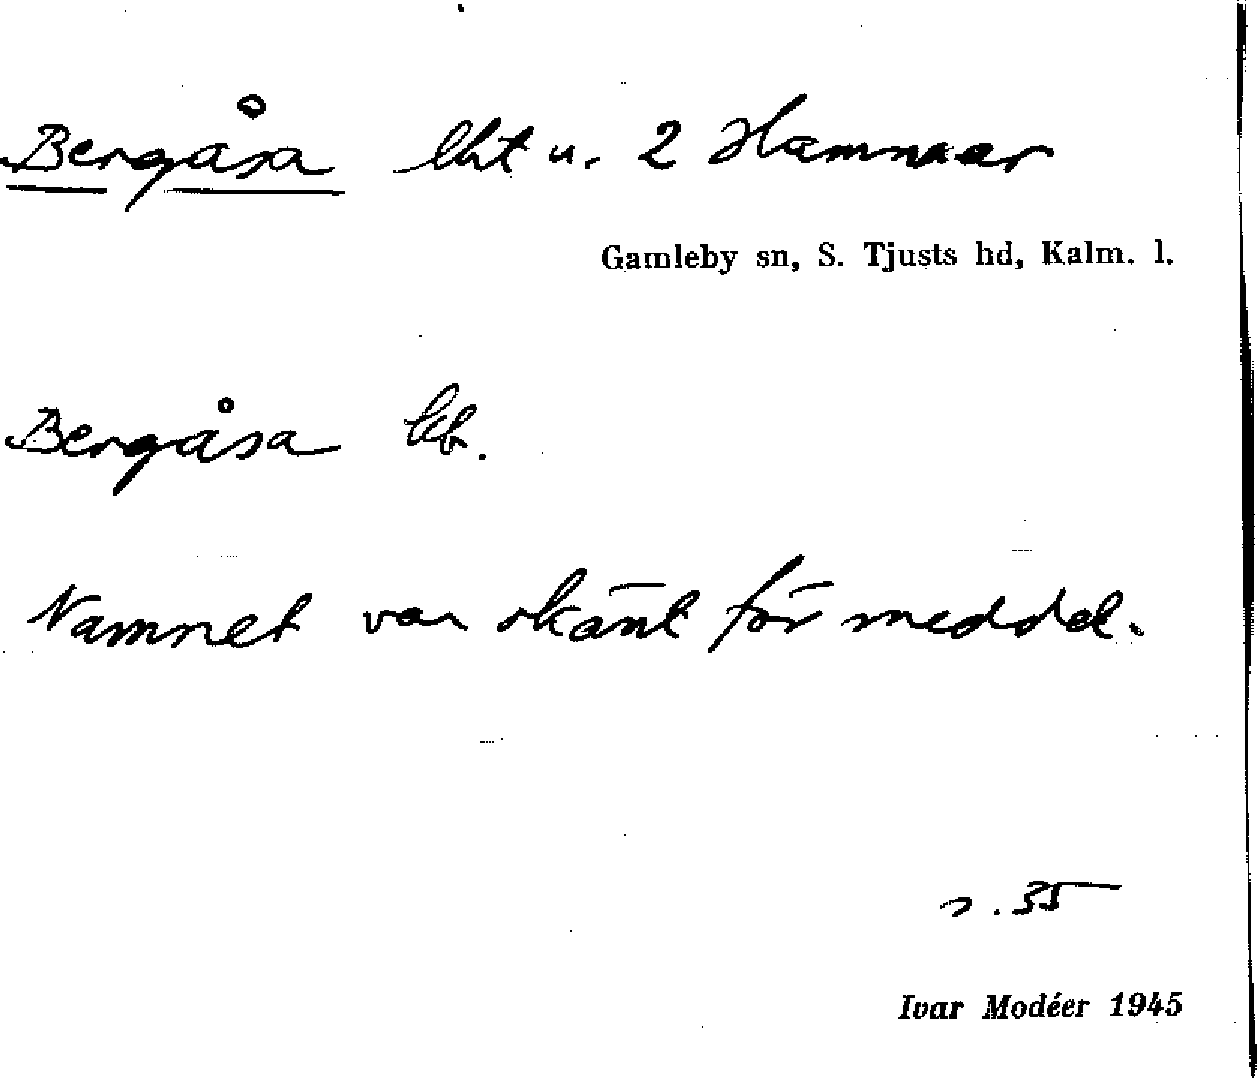 Bergåsa lht u. 2 Hamnaar
Gamleby sn, S. Tjusts hd, Kalm. l.
Bergåsa kb.
Namnet var okänt för meddel.
s. 35
Ivar Modéer 1945